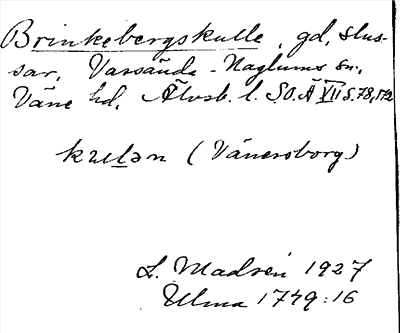 Brinkebergskulle, gd, slus-
sar, Vassända-Naglums sn.,
Väne hd, Älvsb. l. S.O.Ä XII S.78, 172
kulən (Vänersborg)
L. Madsén 1927
Ulma 1749:16